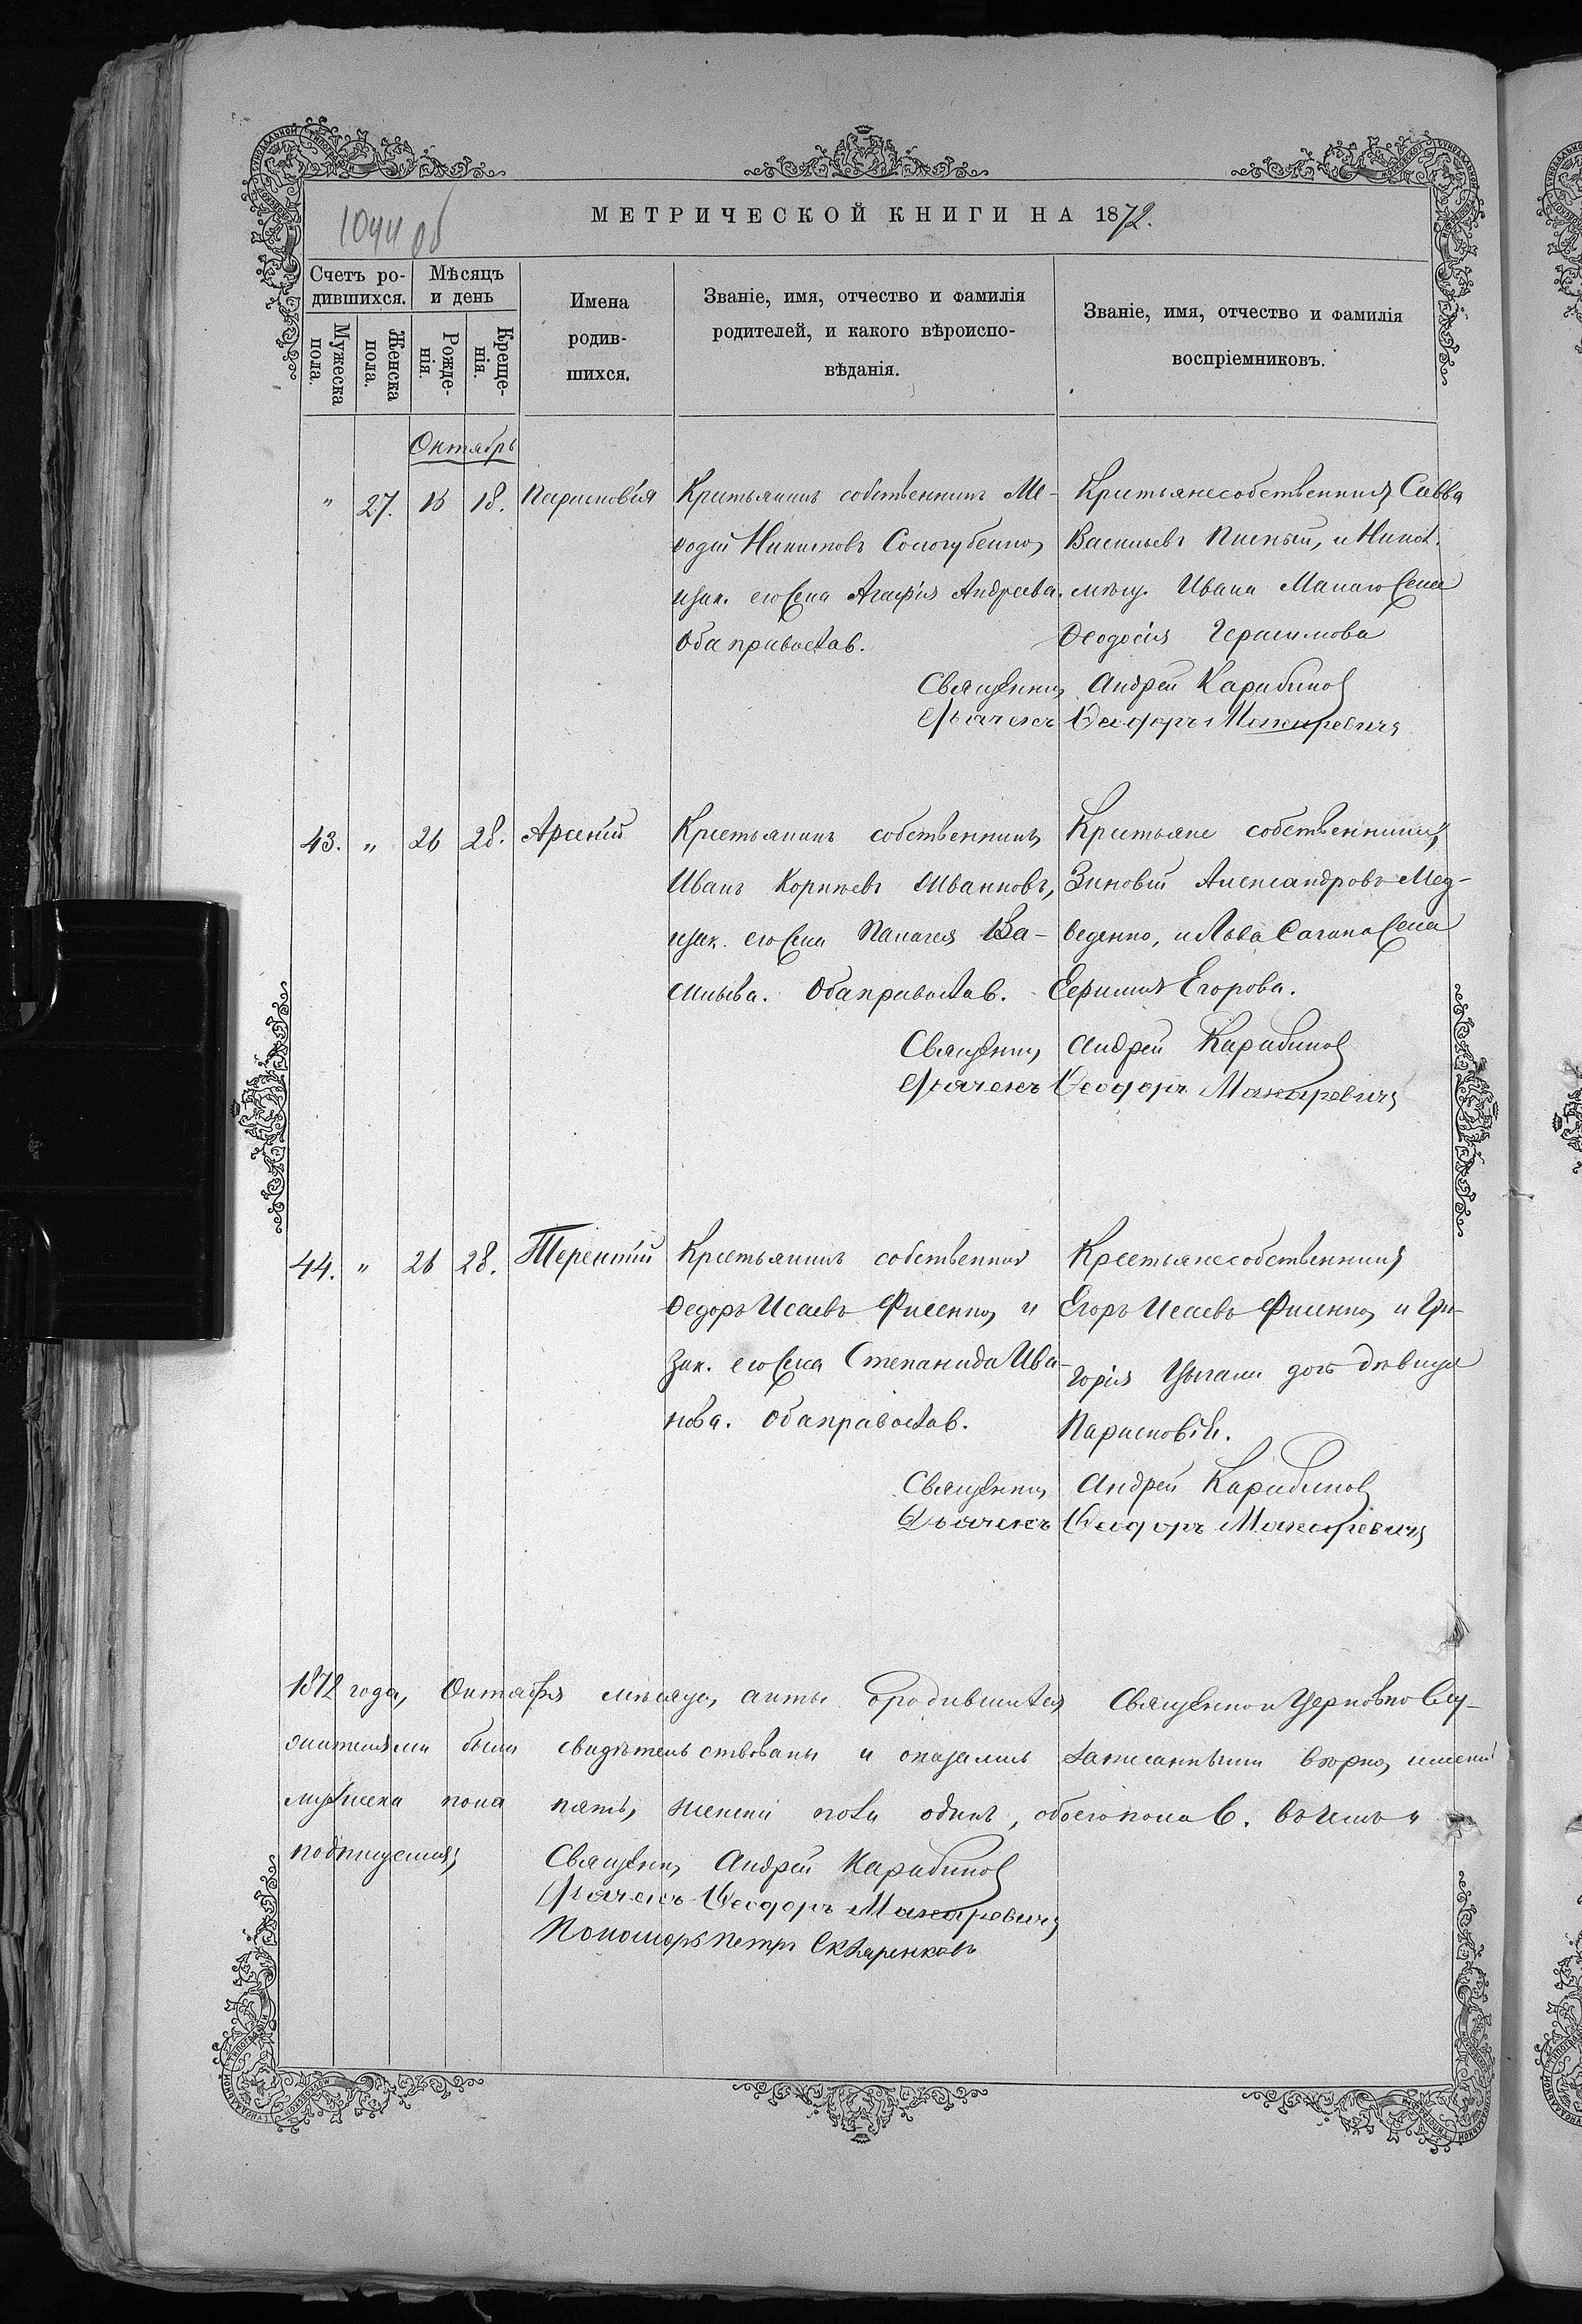 1044 об
МЕТРИЧЕСКОЙ КНИГИ НА 1872.
Счетъ родившихся.
Мѣсяцъ и день
Имена родившихся.
Званіе, имя, отчество и фамилія родителей, и какого вѣроисповѣданія.
Званіе, имя, отчество и фамилія воспріемниковъ.
Мужеска пола.
Женска пола.
Рожденія.
Крещенія.
Октябрь
" 27. 18. Парасковія
Крестьянинъ собственникъ Ме-
фодій Никитовъ Сологубенко,
и зак. его жена Агафія Андреева.
Оба православ.
Крестьяне собственники, Савва
Васильевъ Писный, и
Ивана жена
Феодосія Герасимова
Священникъ Андрей Карабинов
Дьячекъ Феодоръ Макаревичъ
43. " 26 28. Арсеній
Крестьянинъ собственникъ,
Иванъ Корнѣевъ
и зак. его жена Пелагея Ва-
сильева. Оба православ.
Крестьяне собственники,
Зиновій Александровъ Мед-
веденко, и Льва жена
Егорова.
Священникъ Андрей Карабинов
Дьячекъ Феодоръ Макаревичъ
44. " 26 28. Терентій
Крестьянинъ собственник
Федоръ Исаевъ Фисенко, и
зак. его жена Степанида Ива-
нова. Оба православ.
Крестьяне собственники
Егоръ Исаевъ Фисенко, и Гри-
горія Цыгана дочь дѣвица
Парасковія.
Священникъ Андрей Карабинов
Дьячекъ Феодоръ Макаревичъ
1872 года, Октября мѣсяца, акты о родившихся Священно и Церковно Слу-
жителями были свидѣтельствованы и оказались записанными вѣрно,
мужеска пола пять, женска пола одинъ, обоего пола 6. Въ чемъ и
подпишемся,
Священникъ Андрей Карабинов
Дьячекъ Феодоръ Макаревичъ
Пономарь Петръ Скляренковъ